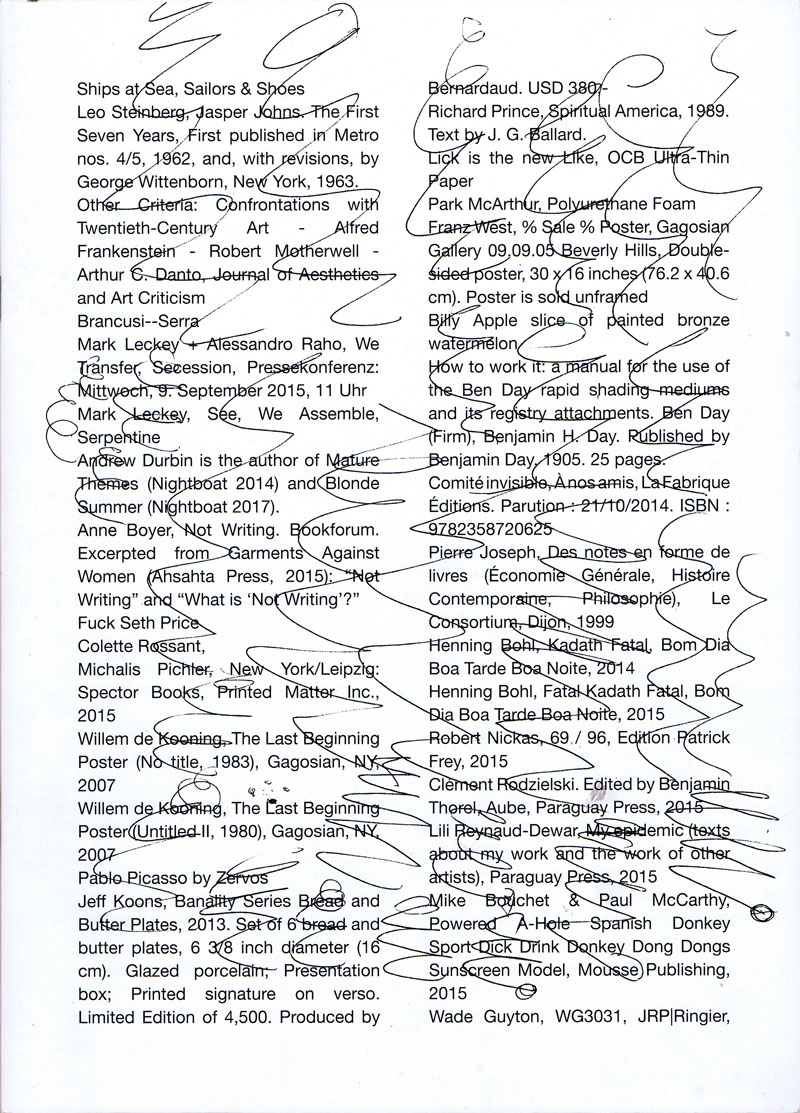 Ships at Sea, Sailors & Shoes
Leo Steinberg, Jasper Johns. The First
Seven Years, First published in Metro
nos. 4/5, 1962, and, with revisions, by
George Wittenborn, New York, 1963.
Other Criteria: Confrontations with
Twentieth-Century Art - Alfred
Frankenstein - Robert Motherwell -
Arthur C. Danto, Journal of Aesthetics
and Art Criticism
Brancusi--Serra
Mark Leckey + Alessandro Raho, We
Transfer, Secession, Pressekonferenz:
Mittwoch, 9. September 2015, 11 Uhr
Mark Leckey, See, We Assemble,
Serpentine
Andrew Durbin is the author of Mature
Themes (Nightboat 2014) and Blonde
Summer (Nightboat 2017).
Anne Boyer, Not Writing. Bookforum.
Excerpted from Garments Against
Women (Ahsahta Press, 2015): “Not
Writing” and “What is ‘Not Writing’?”
Fuck Seth Price
Colette Rossant,
Michalis Pichler, New York/Leipzig:
Spector Books, Printed Matter Inc.,
2015
Willem de Kooning, The Last Beginning
Poster (No title, 1983), Gagosian, NY,
2007
Willem de Kooning, The Last Beginning
Poster (Untitled II, 1980), Gagosian, NY,
2007
Pablo Picasso by Zervos
Jeff Koons, Banality Series Bread and
Butter Plates, 2013. Set of 6 bread and
butter plates, 6 3/8 inch diameter (16
cm). Glazed porcelain; Presentation
box; Printed signature on verso.
Limited Edition of 4,500. Produced by
Bernardaud. USD 380,-
Richard Prince, Spiritual America, 1989.
Text by J. G. Ballard.
Lick is the new Like, OCB Ultra-Thin
Paper
Park McArthur, Polyurethane Foam
Franz West, % Sale % Poster, Gagosian
Gallery 09.09.05 Beverly Hills, Double-
sided poster, 30 x 16 inches (76.2 x 40.6
cm). Poster is sold unframed
Billy Apple slice of painted bronze
watermelon
How to work it: a manual for the use of
the Ben Day rapid shading mediums
and its registry attachments. Ben Day
(Firm), Benjamin H. Day. Published by
Benjamin Day, 1905. 25 pages.
Comité invisible, À nos amis, La Fabrique
Éditions. Parution : 21/10/2014. ISBN :
9782358720625
Pierre Joseph, Des notes en forme de
livres (Économie Générale, Histoire
Contemporaine, Philosophie), Le
Consortium, Dijon, 1999
Henning Bohl, Kadath Fatal, Bom Dia
Boa Tarde Boa Noite, 2014
Henning Bohl, Fatal Kadath Fatal, Bom
Dia Boa Tarde Boa Noite, 2015
Robert Nickas, 69 / 96, Edition Patrick
Frey, 2015
Clément Rodzielski. Edited by Benjamin
Thorel, Aube, Paraguay Press, 2015
Lili Reynaud-Dewar, My epidemic (texts
about my work and the work of other
artists), Paraguay Press, 2015
Mike Bouchet & Paul McCarthy,
Powered A-Hole Spanish Donkey
Sport Dick Drink Donkey Dong Dongs
Sunscreen Model, Mousse Publishing,
2015
Wade Guyton, WG3031, JRP|Ringier,